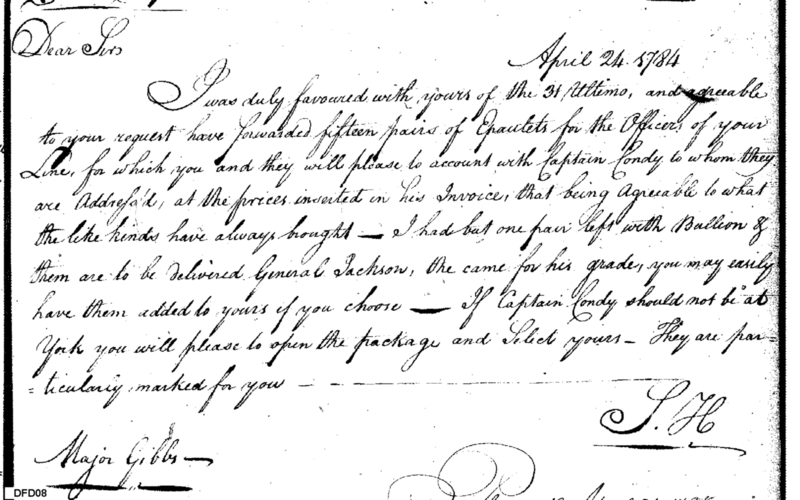 Dear Sir
April 24 1784
I was duly favoured with yours of the 31 Ultimo, and agreeable
to your request have forwarded fifteen pairs of Epaulets for the Officers of your
Line, for which you and they will please to account with Captain Condy to whom they
are Address'd, at the prices inserted in his Invoice, that being Agreeable to what
the like kinds have always brought — I had but one pair left with Bullion &
them are to be delivered General Jackson, the came for his grade, you may easily
have them added to yours if you choose — If Captain Condy should not be at
York you will please to open the package and Select yours — They are par=
=ticularly marked for you —
S. H
Major Gibbs —
DFD08